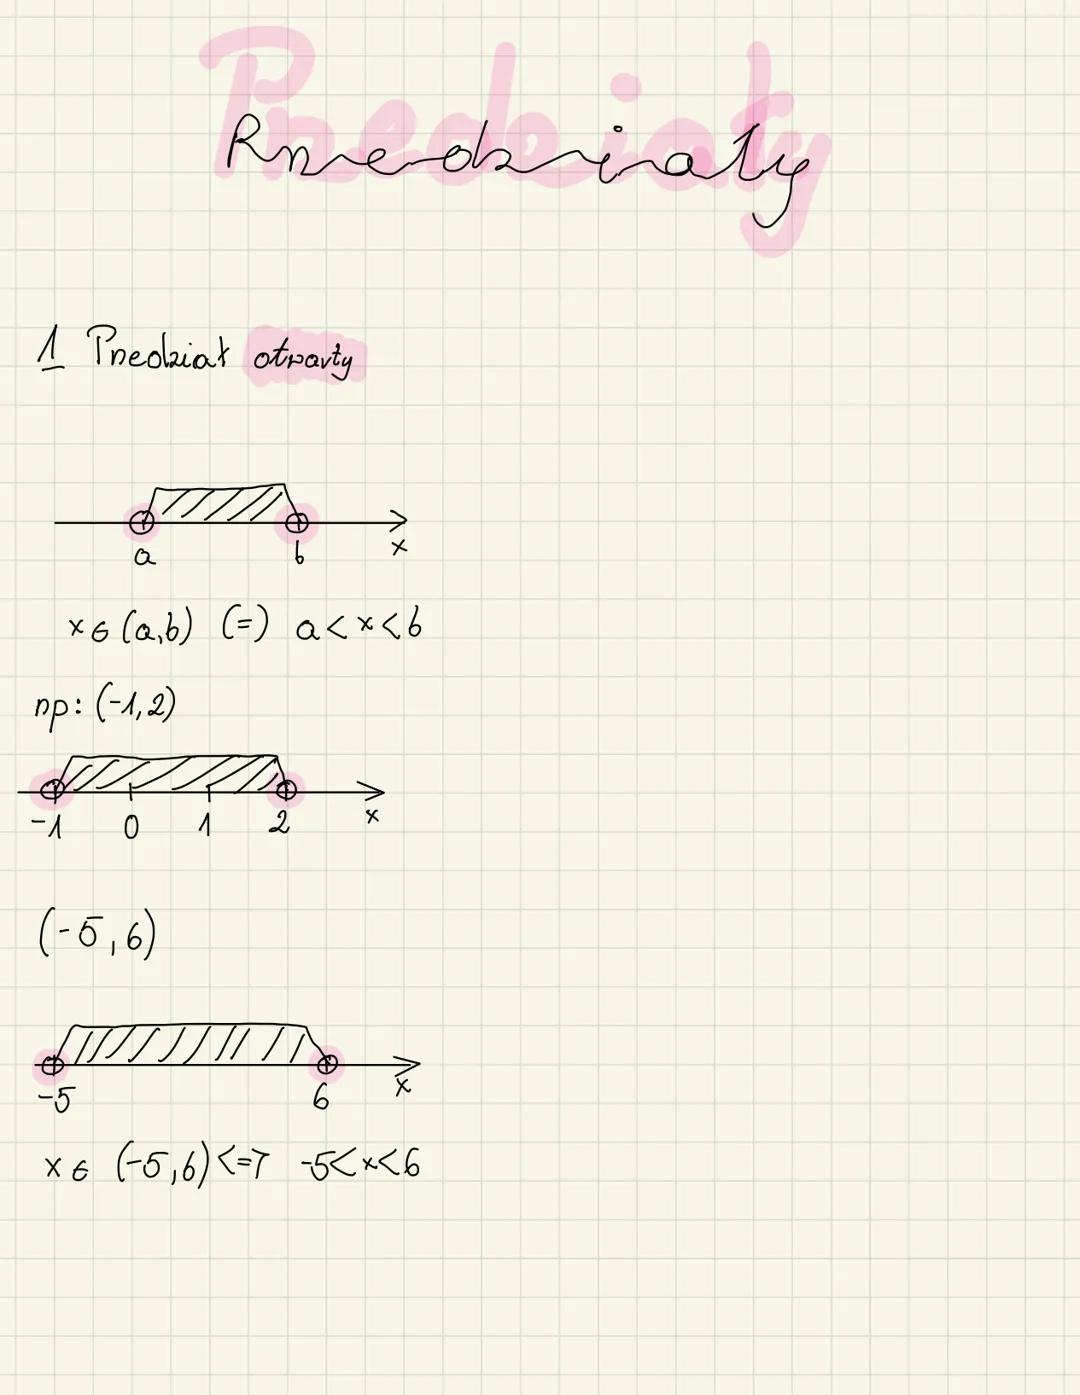 Przedziały
1 Przedział otwarty
a b x
x ∈ (a,b) (=) a < x < b
np: (-1, 2)
-1 0 1 2 x
(-5, 6)
-5 6 x
x ∈ (-5, 6) <=> -5 < x < 6